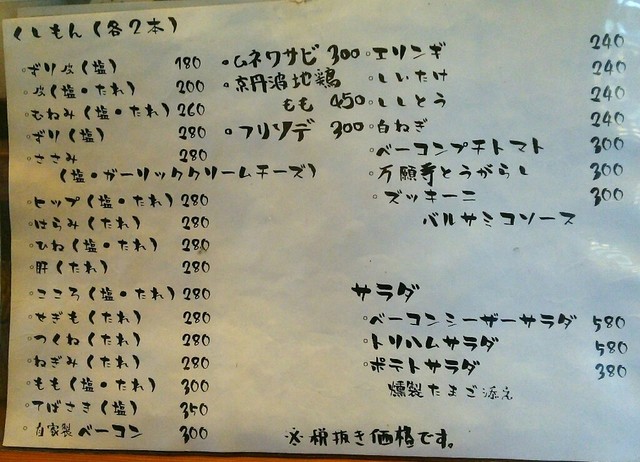 くしもん(各2本)
・ずり皮(塩) 180
・皮(塩・たれ) 200
・むねみ(塩・たれ) 260
・ずり(塩) 280
・ささみ 280
(塩・ガーリッククリームチーズ)
・ヒップ(塩・たれ) 280
・はらみ(たれ) 280
・ひね(塩・たれ) 280
・肝(たれ) 280
・こころ(塩・たれ) 280
・せぎも(たれ) 280
・つくね(たれ) 280
・ねぎみ(たれ) 280
・もも(塩・たれ) 300
・てばさき(塩) 350
・自家製ベーコン 300
・ムネワサビ 300
・京丹波地鶏
もも 450
・フリソデ 300
・エリンギ 240
・しいたけ 240
・ししとう 240
・白ねぎ 240
・ベーコンプチトマト 300
・万願寺とうがらし 300
・ズッキーニ 300
バルサミコソース
サラダ
・ベーコンシーザーサラダ 580
・トリハムサラダ 580
・ポテトサラダ 380
燻製たまご添え
※税抜き価格です。